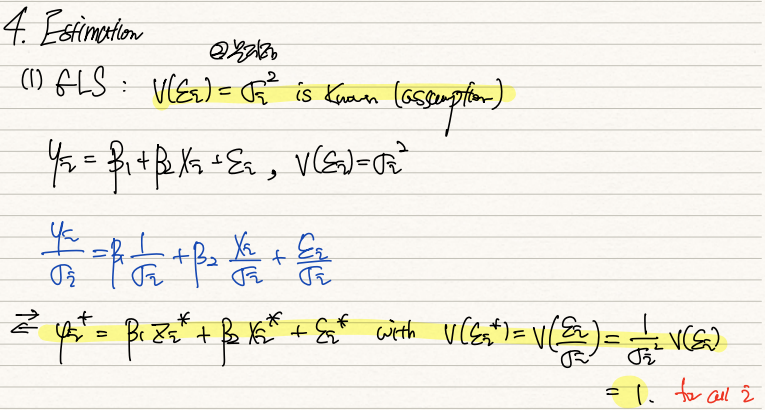 4. Estimation
(1) GLS : V(εᵢ) = σᵢ² is known (assumption)
yᵢ = β₁ + β₂ Xᵢ + εᵢ , V(εᵢ) = σᵢ²
yᵢ/σᵢ = β₁ 1/σᵢ + β₂ Xᵢ/σᵢ + εᵢ/σᵢ
⇄ yᵢ* = β₁ Zᵢ* + β₂ Xᵢ* + εᵢ* with V(εᵢ*) = V(εᵢ/σᵢ) = 1/σᵢ² V(εᵢ)
= 1. for all i